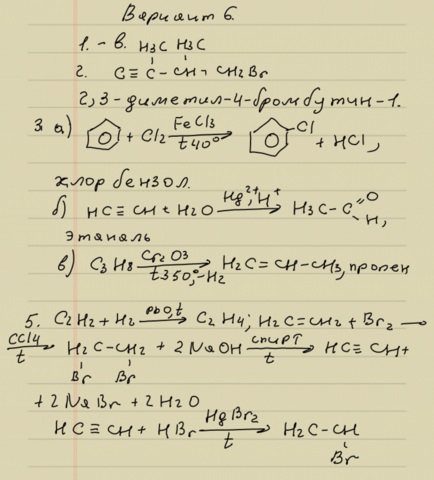 Вариант 6.
1. - в. H3C H3C
2. C≡C-CH-CH2Br
2,3-диметил-4-бромбутин-1.
3 а) + Cl2 FeCl3 t40° Cl + HCl,
хлорбензол.
б) HC≡CH + H2O Hg2+, H+ → H3C-C =O H,
этаналь
в) C3H8 Cr2O3 t350°, -H2 → H2C=CH-CH3, пропен
5. C2H2 + H2 PbO, t → C2H4; H2C=CH2 + Br2 →
CCl4 t → H2C-CH2 + 2NaOH спирт t → HC≡CH+
Br Br
+ 2NaBr + 2H2O
HC≡CH + HBr HgBr2 t → H2C-CH
Br